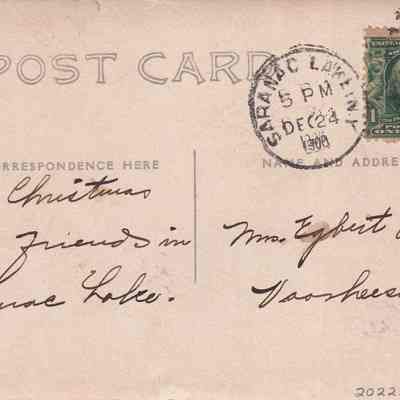 POST CARD
SARANAC LAKE, N.Y.
5 PM
DEC 24
1
ORRESPONDENCE HERE
NAME AND ADDRE
Christmas
Friends in
nac Lake.
Mrs. Egbert
Voorhees
2022